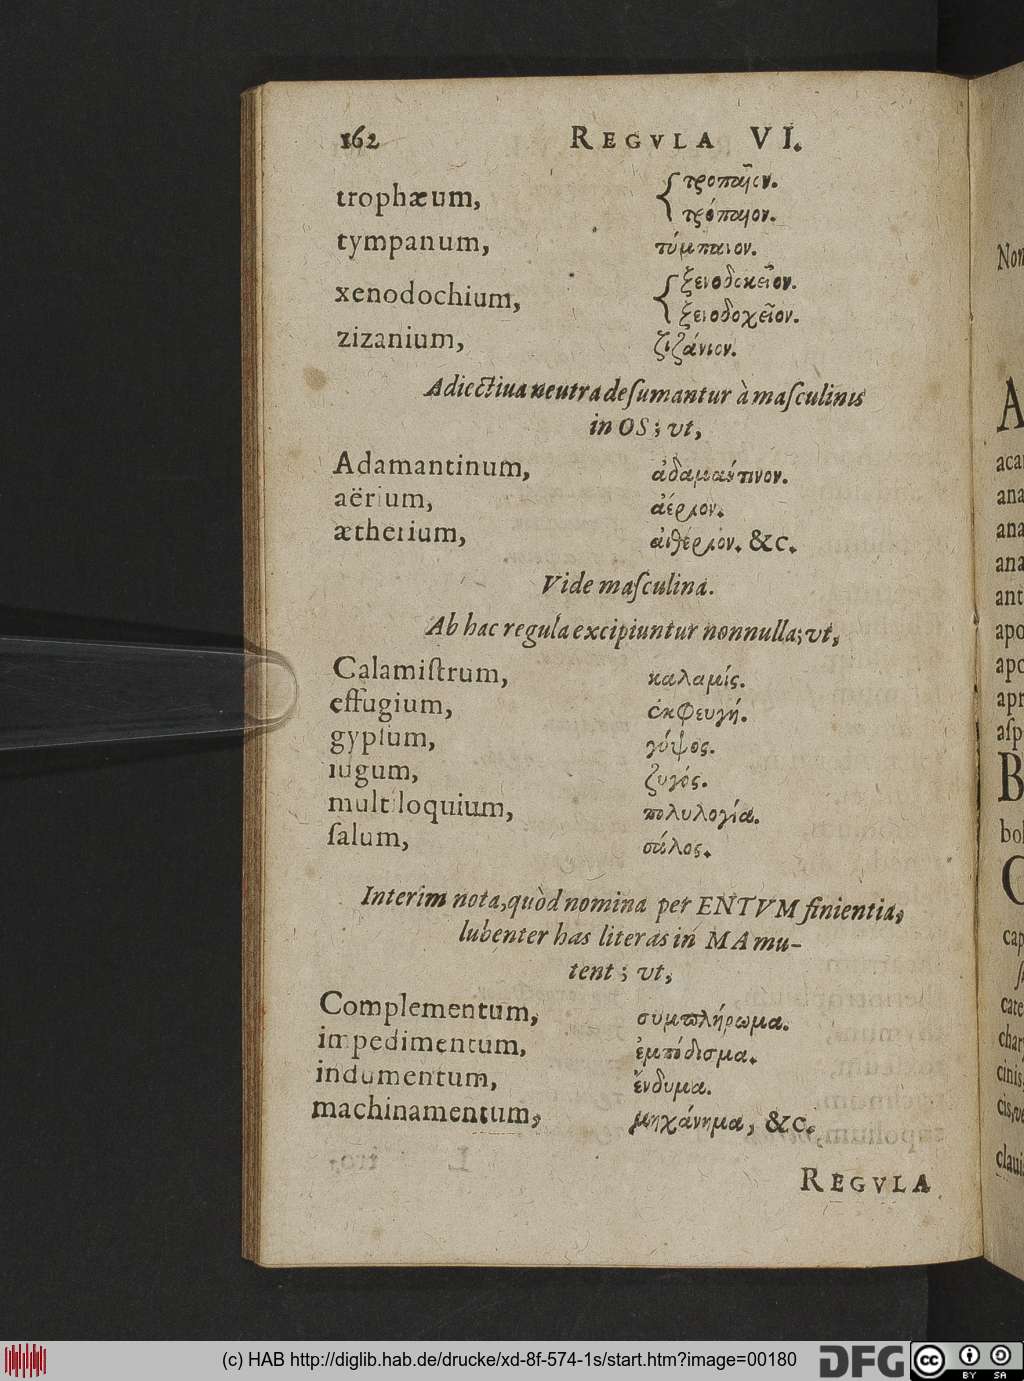 162 REGVLA VI.
trophæum, { τροπαῖον.
τρόπαιον.
tympanum, τύμπανον.
xenodochium, { ξενοδοκεῖον.
ξενοδοχεῖον.
zizanium, ζιζάνιον.
Adiectiua neutra deſumantur à maſculinis
in OS; vt,
Adamantinum, ἀδαμαντινον.
aërium, ἀέριον.
ætherium, αἰθέριον. &c.
Vide maſculina.
Ab hac regula excipiuntur nonnulla; vt,
Calamiſtrum, καλαμίς.
effugium, ἐκφευγή.
gypſum, γύψος.
iugum, ζυγός.
multiloquium, πολυλογία.
ſalum, σάλος.
Interim nota, quòd nomina per ENTVM finientia,
lubenter has literas in MA mu-
tent; vt,
Complementum, συμπλήρωμα.
impedimentum, ἐμπόδισμα.
indumentum, ἔνδυμα.
machinamentum, μηχάνημα, &c.
REGVLA
Non
A
aca
ana
ana
ana
ant
apo
apo
apr
aſp
B
bol
C
cap
cate
char
cinis
clauis
(c) HAB http://diglib.hab.de/drucke/xd-8f-574-1s/start.htm?image=00180
DFG
cc
BY SA